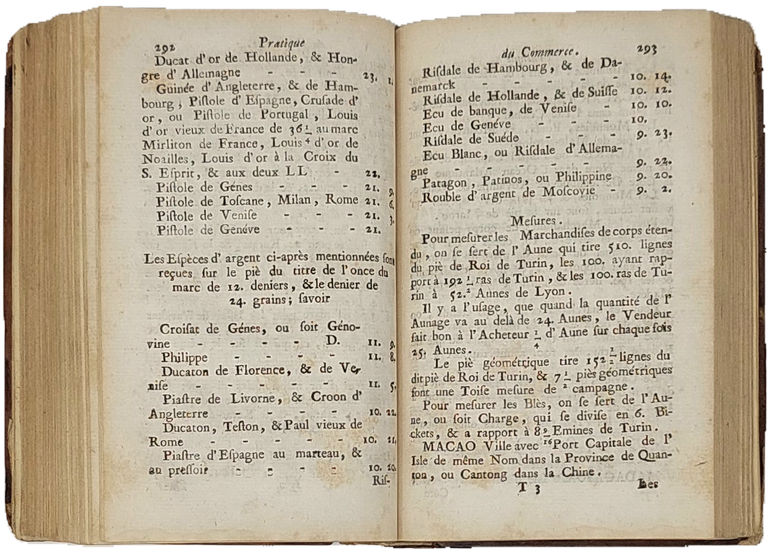 292 Pratique
Ducat d'or de Hollande, & Hon-
gre d'Allemagne - - - 23. 1.
Guinée d'Angleterre, & de Ham-
bourg, Piſtole d'Eſpagne, Cruſade d'
or, ou Piſtole de Portugal, Louis
d'or vieux de France de 36 1/4 au marc
Mirliton de France, Louis d'or de
Noailles, Louis d'or à la Croix du
S. Eſprit, & aux deux LL - 22.
Piſtole de Génes - - - 21. 9.
Piſtole de Toſcane, Milan, Rome 21. 6.
Piſtole de Veniſe - - - 21. 3.
Piſtole de Genéve - - - 21.
Les Eſpèces d'argent ci-après mentionnées ſont
reçues ſur le piè du titre de l'once du
marc de 12. deniers, & le denier de
24. grains; ſavoir
Croiſat de Génes, ou ſoit Géno-
vine - - - - D. 11. 9.
Philippe - - - - 11. 8.
Ducaton de Florence, & de Ve-
niſe - - - - - 11. 5.
Piaſtre de Livorne, & Croon d'
Angleterre - - - - 10. 22.
Ducaton, Teſton, & Paul vieux de
Rome - - - - - 10. 21.
Piaſtre d'Eſpagne au marteau, &
au preſſoir - - - - 10. 20.
Riſ-
du Commerce. 293
Riſdale de Hambourg, & de Da-
nemarck - - - - 10. 14.
Riſdale de Hollande, & de Suiſſe 10. 12.
Ecu de banque, de Veniſe - 10. 10.
Ecu de Genéve - - - 10.
Riſdale de Suéde - - - 9. 23.
Ecu Blanc, ou Riſdale d'Allema-
gne - - - - - 9. 22.
Patagon, Patinos, ou Philippine 9. 20.
Rouble d'argent de Moſcovie - 9. 2.
Meſures.
Pour meſurer les Marchandiſes de corps éten-
du, on ſe ſert de l'Aune qui tire 510. lignes
du piè de Roi de Turin, les 100. ayant rap-
port à 192 1/2 ras de Turin, & les 100. ras de Tu-
rin à 52. Aunes de Lyon.
Il y a l'uſage, que quand la quantité de l'
Aunage va au delà de 24. Aunes, le Vendeur
fait bon à l'Acheteur 1/4 d'Aune ſur chaque fois
25. Aunes.
Le piè géométrique tire 152 1/2 lignes du
dit piè de Roi de Turin, & 7 1/2 piès géométriques
ſont une Toiſe meſure de campagne.
Pour meſurer les Blès, on ſe ſert de l'Au-
ne, ou ſoit Charge, qui ſe diviſe en 6. Bi-
ckets, & a rapport à 8 9/16 Emines de Turin.
MACAO Ville avec Port Capitale de l'
Isle de même Nom dans la Province de Quan-
ton, ou Cantong dans la Chine.
T 3 Les